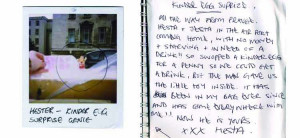 HESTER - KINDER EGG
SURPRISE GENIE
KINDER EGG SUPRIZE.
ALL THE WAY FROM FRANCE.
HESTA + JESTA IN THE AIR PORT
COMING HOME, WITH NO MONEY
+ STARVING + IN NEED OF A
DRINK!! SO SWOPPED A KINDER EGG
FOR A PENNY SO WE COULD GET
A DRINK, BUT THE MAN GAVE US
THE LITTLE TOY INSIDE. IT HAS
BEEN IN MY BAG EVER SINCE
AND HAS GONE EVERYWHERE WITH
ME!! NOW HE IS YOURS
XXX HESTA.